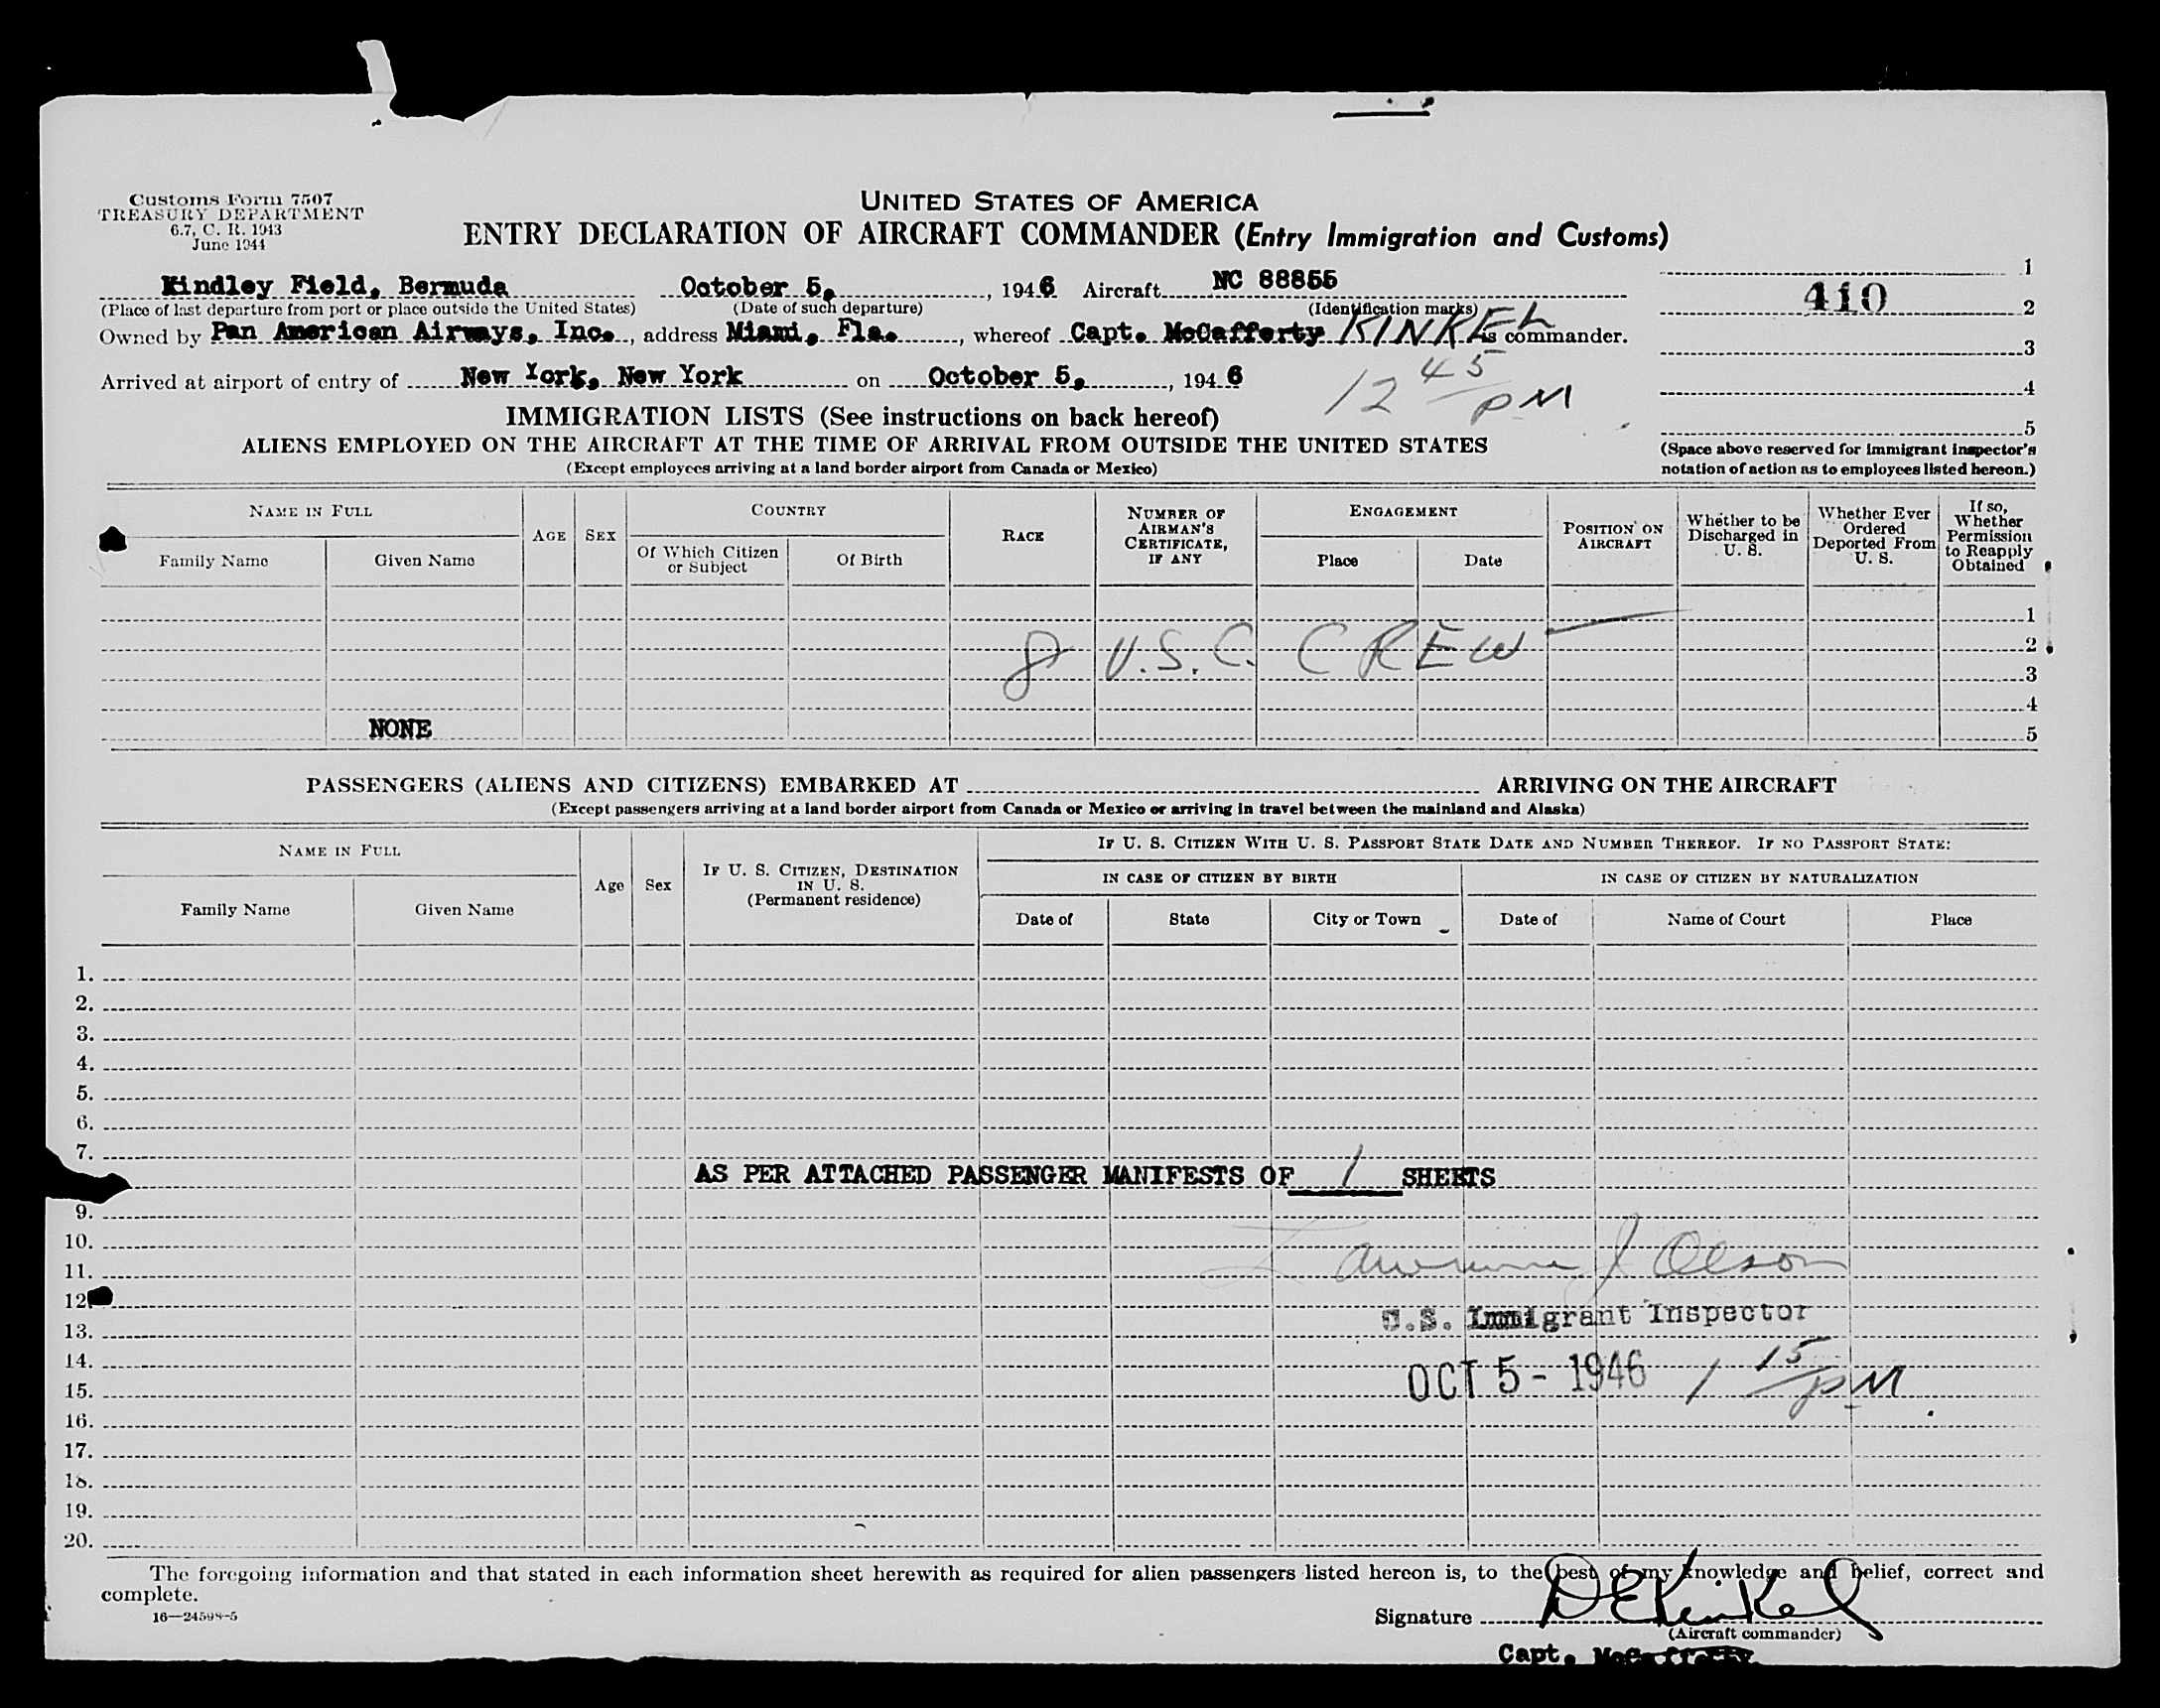 Customs Form 7507
TREASURY DEPARTMENT
6.7, C. R. 1943
June 1944
UNITED STATES OF AMERICA
ENTRY DECLARATION OF AIRCRAFT COMMANDER (Entry Immigration and Customs)
Kindley Field, Bermuda October 5, , 1946 Aircraft NC 88855
(Place of last departure from port or place outside the United States) (Date of such departure) (Identification marks)
Owned by Pan American Airways, Inc. , address Miami, Fla. , whereof Capt. McCafferty KINKEL is commander.
Arrived at airport of entry of New York, New York on October 5, , 1946
12 45 PM
1
410
2
3
4
5
(Space above reserved for immigrant inspector's
notation of action as to employees listed hereon.)
IMMIGRATION LISTS (See instructions on back hereof)
ALIENS EMPLOYED ON THE AIRCRAFT AT THE TIME OF ARRIVAL FROM OUTSIDE THE UNITED STATES
(Except employees arriving at a land border airport from Canada or Mexico)
NAME IN FULL
Family Name Given Name
AGE SEX
COUNTRY
Of Which Citizen or Subject Of Birth
RACE
NUMBER OF AIRMAN'S CERTIFICATE, IF ANY
ENGAGEMENT
Place Date
POSITION ON AIRCRAFT
Whether to be Discharged in U. S.
Whether Ever Ordered Deported From U. S.
If so, Whether Permission to Reapply Obtained
1
8 U.S.C. CREW 2
3
4
NONE 5
PASSENGERS (ALIENS AND CITIZENS) EMBARKED AT ARRIVING ON THE AIRCRAFT
(Except passengers arriving at a land border airport from Canada or Mexico or arriving in travel between the mainland and Alaska)
NAME IN FULL
Family Name Given Name
Age Sex
IF U. S. CITIZEN, DESTINATION IN U. S.
(Permanent residence)
IF U. S. CITIZEN WITH U. S. PASSPORT STATE DATE AND NUMBER THEREOF. IF NO PASSPORT STATE:
IN CASE OF CITIZEN BY BIRTH IN CASE OF CITIZEN BY NATURALIZATION
Date of State City or Town Date of Name of Court Place
1.
2.
3.
4.
5.
6.
7.
AS PER ATTACHED PASSENGER MANIFESTS OF 1 SHEETS
9.
10.
11. Lawrence J Olson
12.
13. U.S. Immigrant Inspector
14.
15. OCT 5 - 1946 1 15 PM
16.
17.
18.
19.
20.
The foregoing information and that stated in each information sheet herewith as required for alien passengers listed hereon is, to the best of my knowledge and belief, correct and
complete.
16—24598-5
Signature D E Kinkel
(Aircraft commander)
Capt. McCafferty